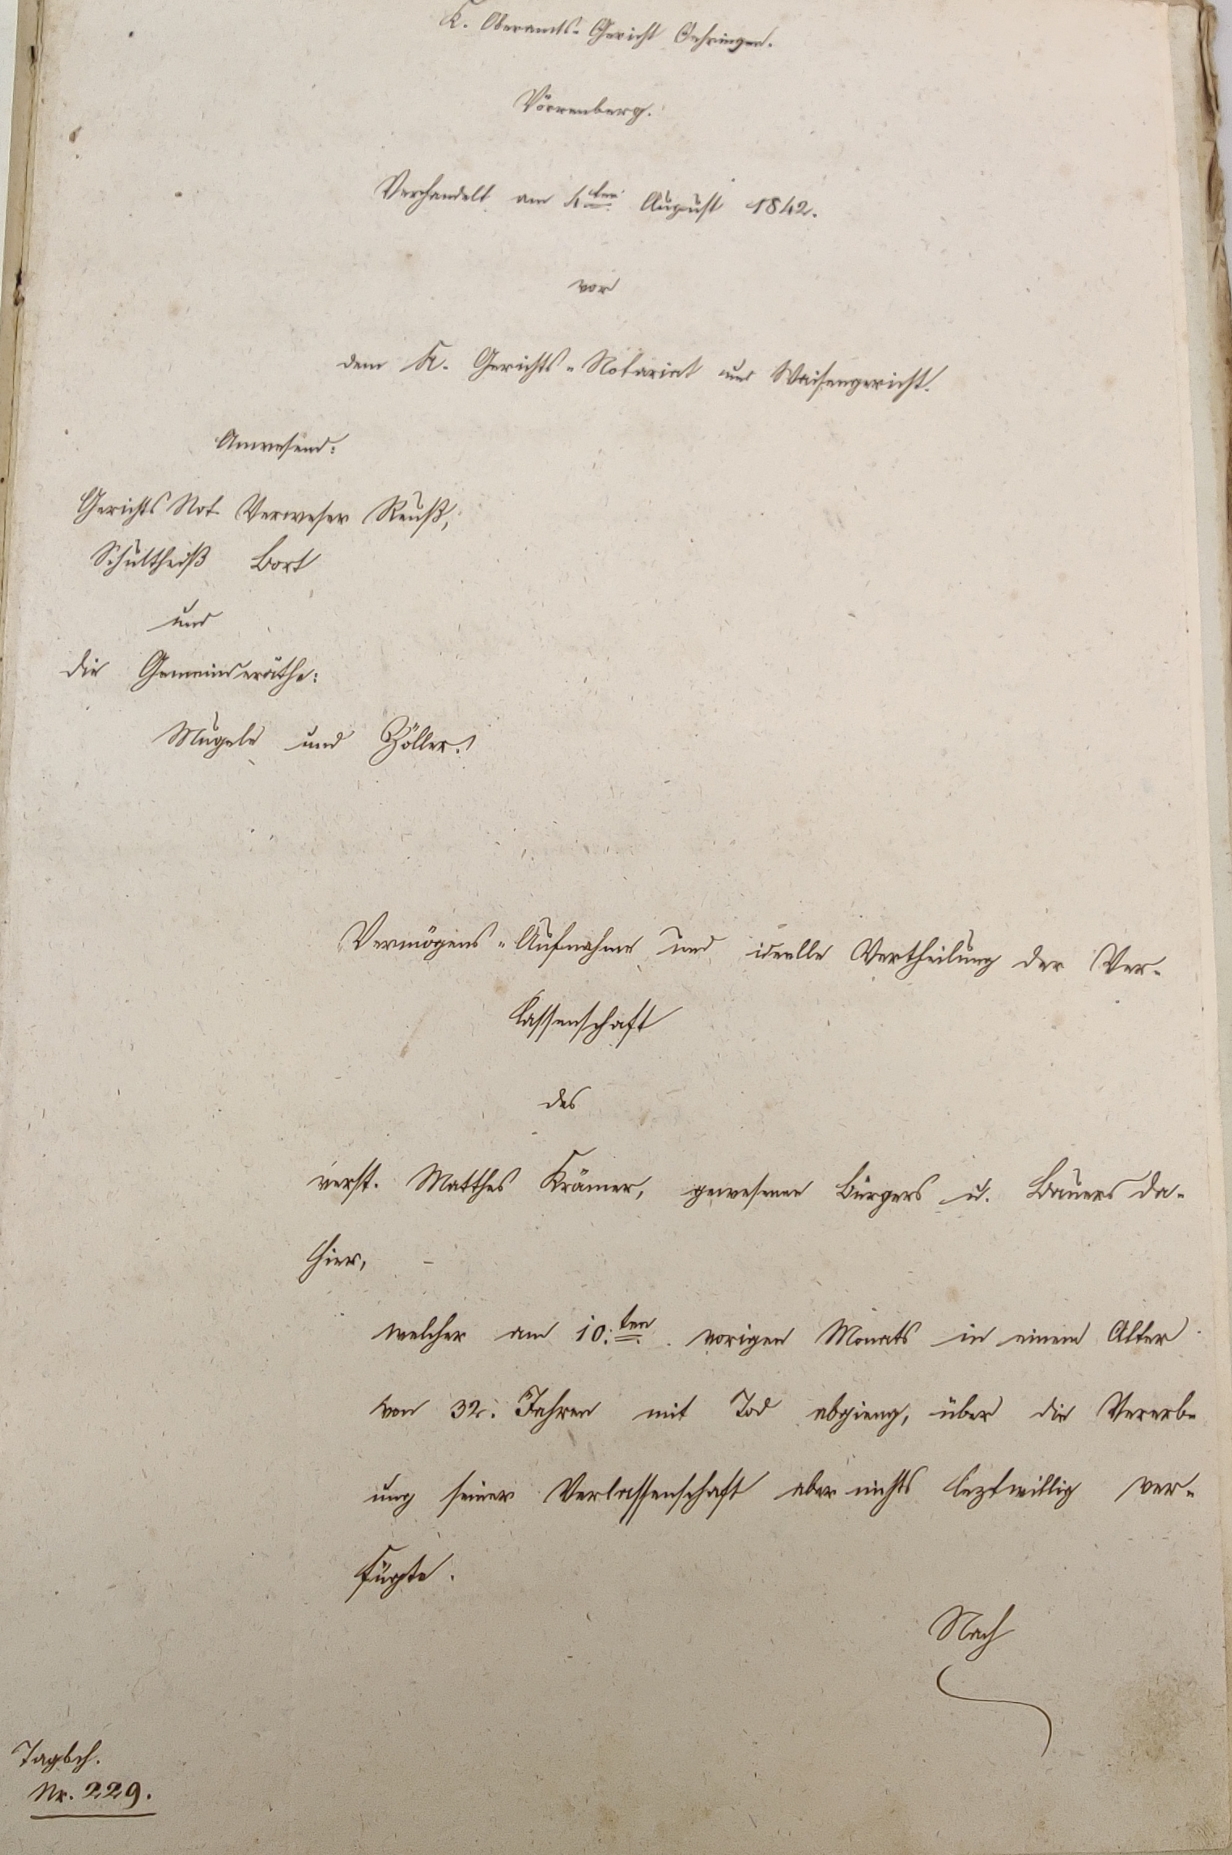 K. Oberamts-Gericht Oehringen.
Vörrenberg.
Verhandelt am 4ten August 1842.
vor
dem K. Gerichts-Notariat und Waisengericht.
Anwesend:
Gerichts Not. Verweser Reuß,
Schultheiß Bort
und
die Gemeinderäthe:
Mugele und Zöller.
Vermögens-Aufnahme und ideelle Vertheilung der Ver-
lassenschaft
des
verst. Matthes Krämer, gewesenen Bürgers u. Bauers da-
hier, -
welcher am 10.ten vorigen Monats in einem Alter
von 32. Jahren mit Tod abgieng, über die Vererb-
ung seiner Verlassenschaft aber nichts leztwillig ver-
fügte.
Nach
Tagbch.
Nr. 229.